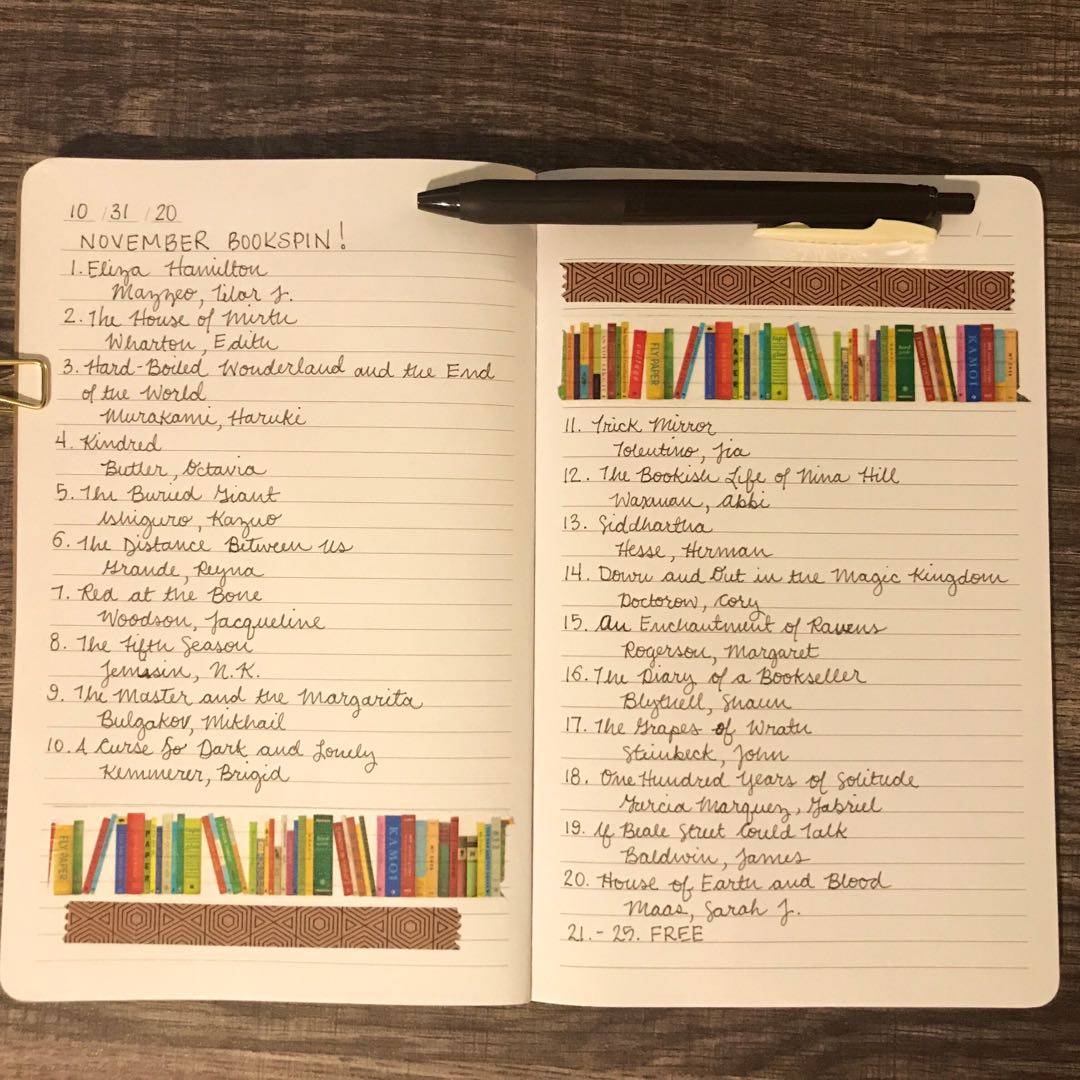 10 / 31 / 20
NOVEMBER BOOKSPIN!
1. Eliza Hamilton
Mazzeo, Tilar J.
2. The House of Mirth
Wharton, Edith
3. Hard-Boiled Wonderland and the End
of the World
Murakami, Haruki
4. Kindred
Butler, Octavia
5. The Buried Giant
Ishiguro, Kazuo
6. The Distance Between Us
Grande, Reyna
7. Red at the Bone
Woodson, Jacqueline
8. The Fifth Season
Jemisin, N.K.
9. The Master and the Margarita
Bulgakov, Mikhail
10. A Curse So Dark and Lonely
Kemmerer, Brigid
FLY PAPER
PAPER
KAMOI
MT CASA
KAMOI
FLY PAPER
PAPER
KAMOI
11. Trick Mirror
Tolentino, Jia
12. The Bookish Life of Nina Hill
Waxman, Abbi
13. Siddhartha
Hesse, Herman
14. Down and Out in the Magic Kingdom
Doctorow, Cory
15. An Enchantment of Ravens
Rogerson, Margaret
16. The Diary of a Bookseller
Blythell, Shaun
17. The Grapes of Wrath
Steinbeck, John
18. One Hundred Years of Solitude
Garcia Marquez, Gabriel
19. If Beale Street Could Talk
Baldwin, James
20. House of Earth and Blood
Maas, Sarah J.
21. - 25. FREE